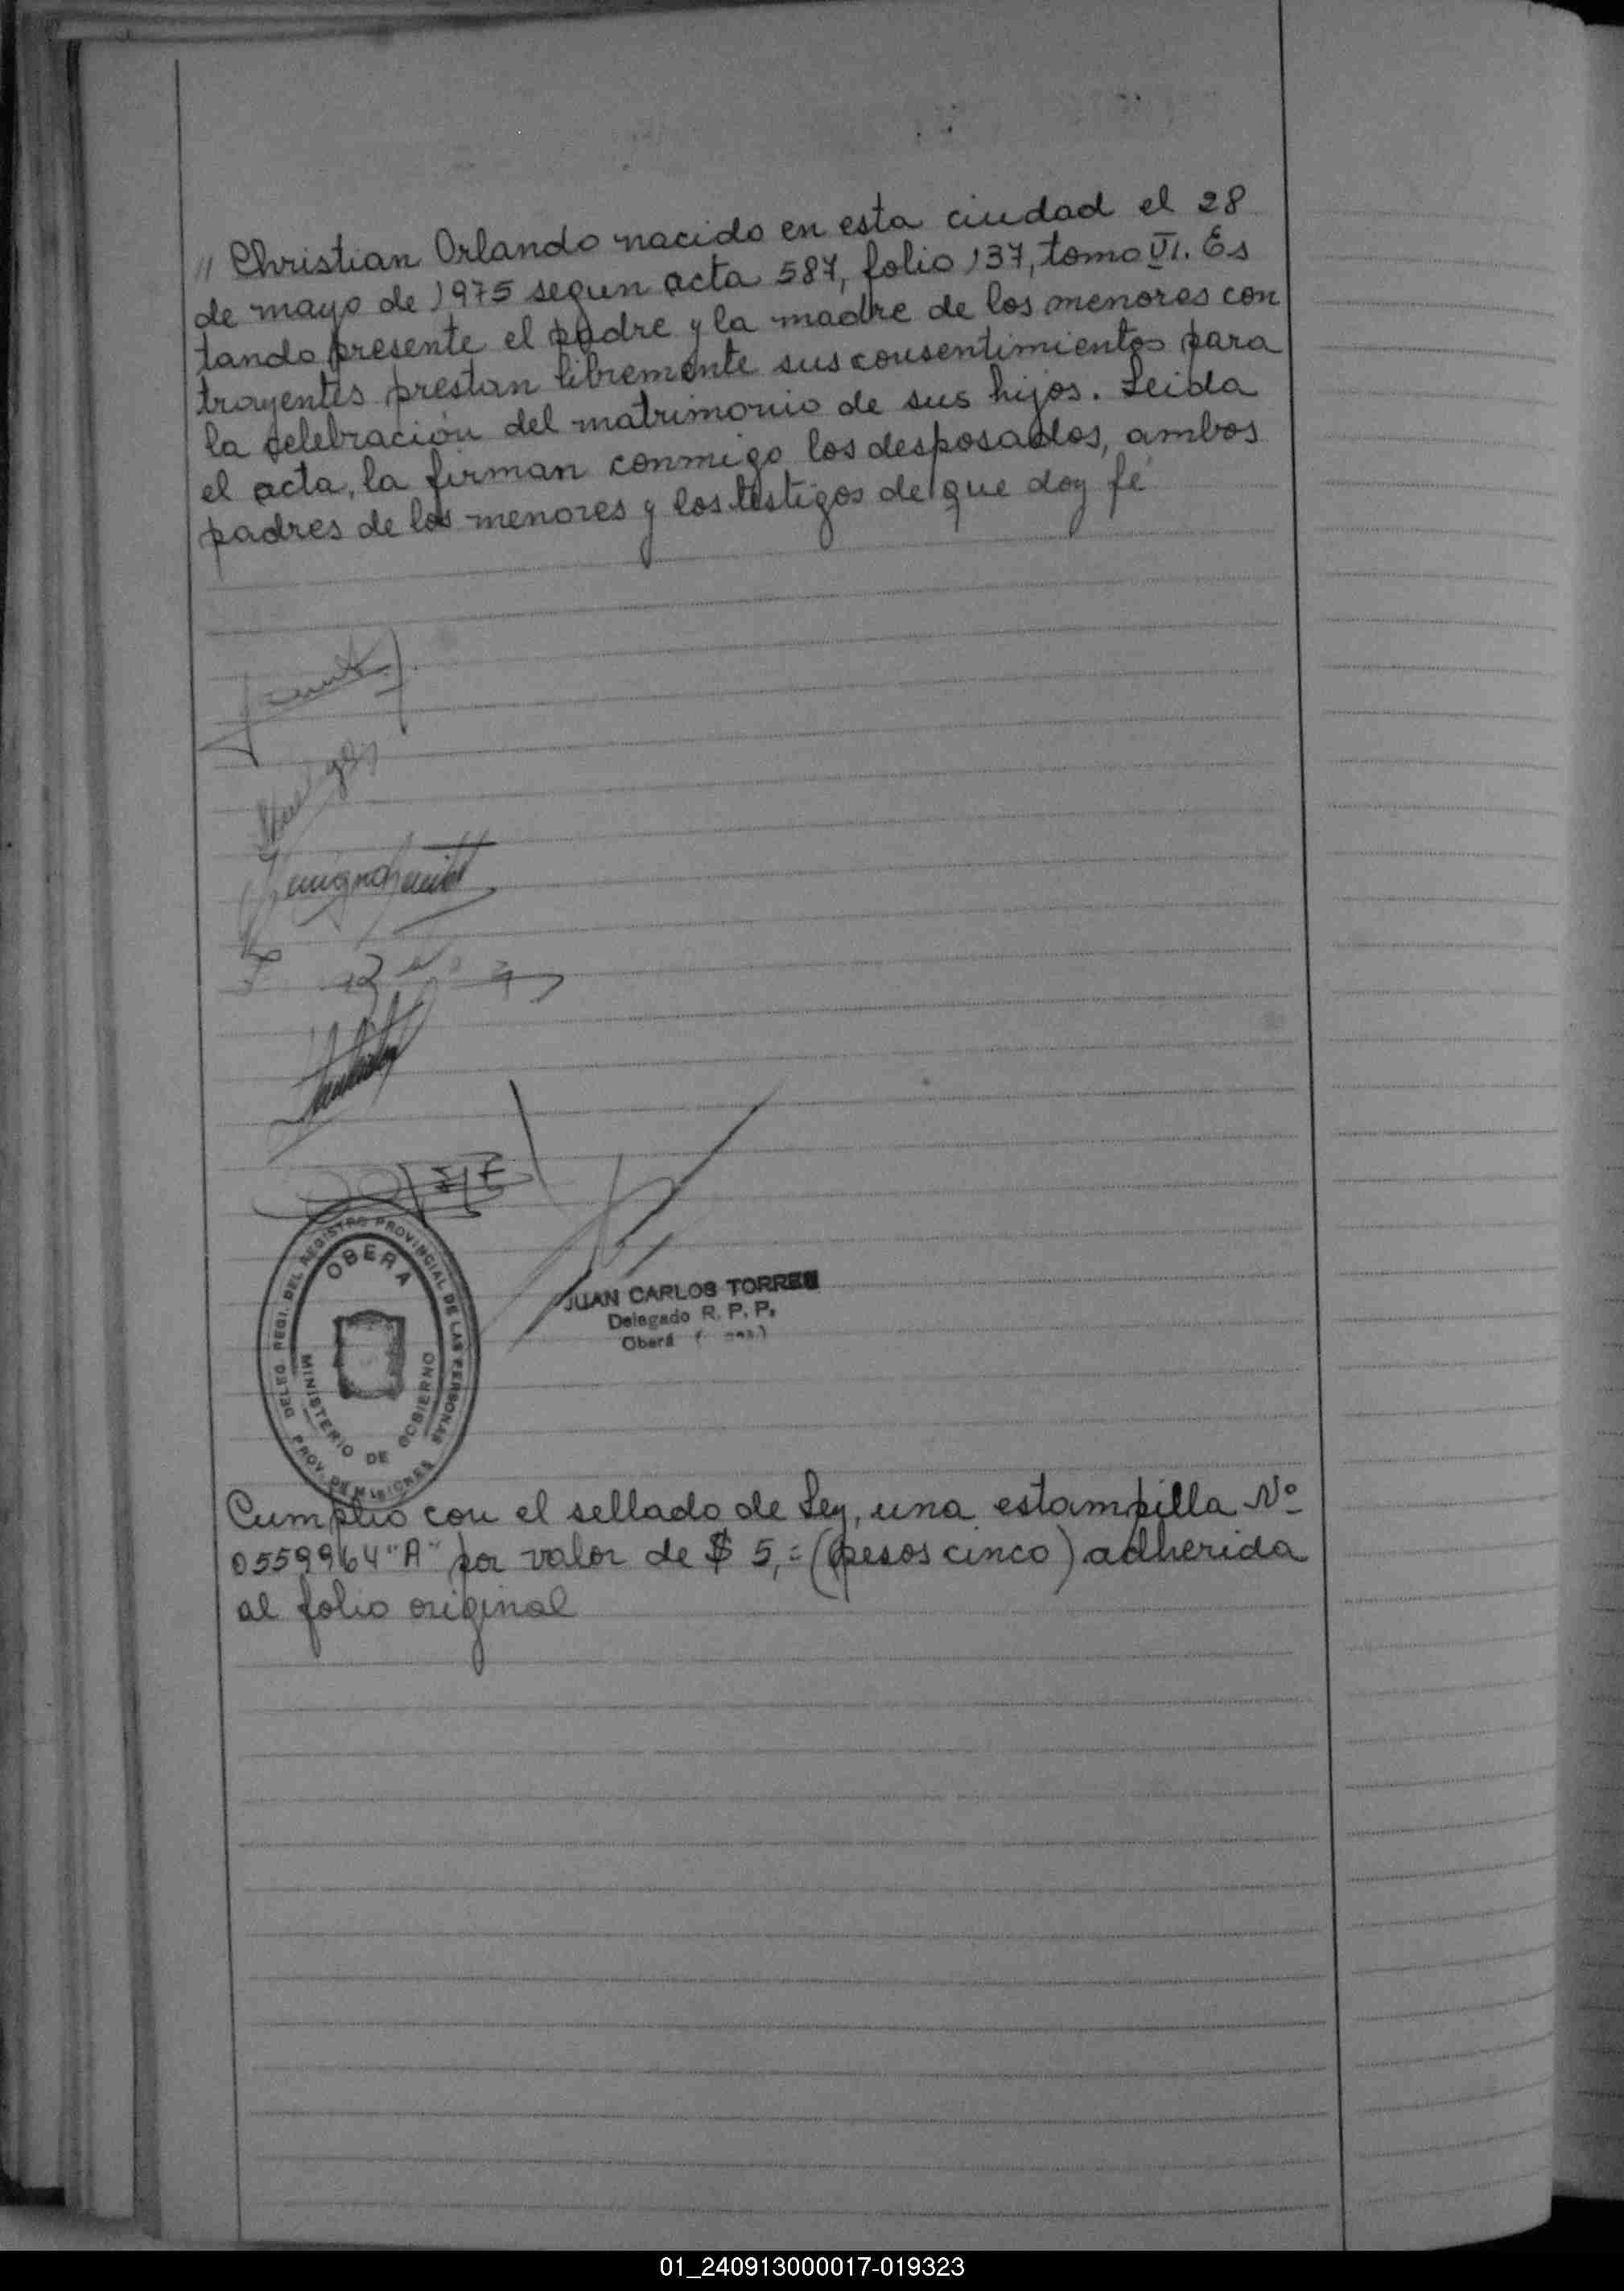 " Christian Orlando nacido en esta ciudad el 28
de mayo de 1975 segun acta 587, folio 137, tomo VI. Es
tando presente el padre y la madre de los menores con
trayentes prestan libremente sus consentimientos para
la celebración del matrimonio de sus hijos. Leida
el acta, la firman conmigo los desposados, ambos
padres de los menores y los testigos de que doy fé
OBERA
DELEG. REGI. DEL REGISTRO PROVINCIAL DE LAS PERSONAS
MINISTERIO DE GOBIERNO
PROV. DE MISIONES
JUAN CARLOS TORRES
Delegado R. P. P.
Oberá
Cumplio con el sellado de Ley, una estampilla Nº
0559964 "A" por valor de $ 5,= (pesos cinco) adherida
al folio original
01_240913000017-019323